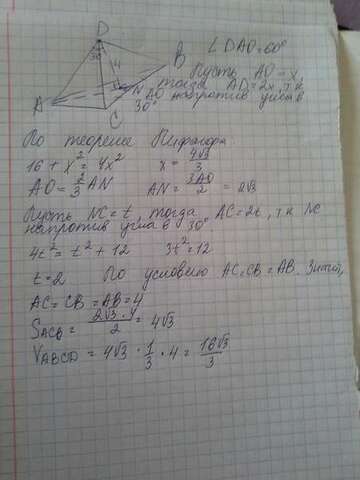 D
30°
4
A
B
N
C
∠DAO=60°
Пусть AO = x,
тогда AD=2x, т.к.
AO напротив угла в
30°
По теореме Пифагора
16 + x² = 4x² x = 4√3/3
AO = 2/3 AN AN = 3AO/2 = 2√3
Пусть NC = t, тогда AC = 2t, т.к NC
напротив угла в 30°
4t² = t² + 12 3t² = 12
t = 2 По условию AC=CB=AB. Значит,
AC = CB = AB = 4
S_ACB = 2√3 · 4/2 = 4√3
V_ABCD = 4√3 · 1/3 · 4 = 16√3/3